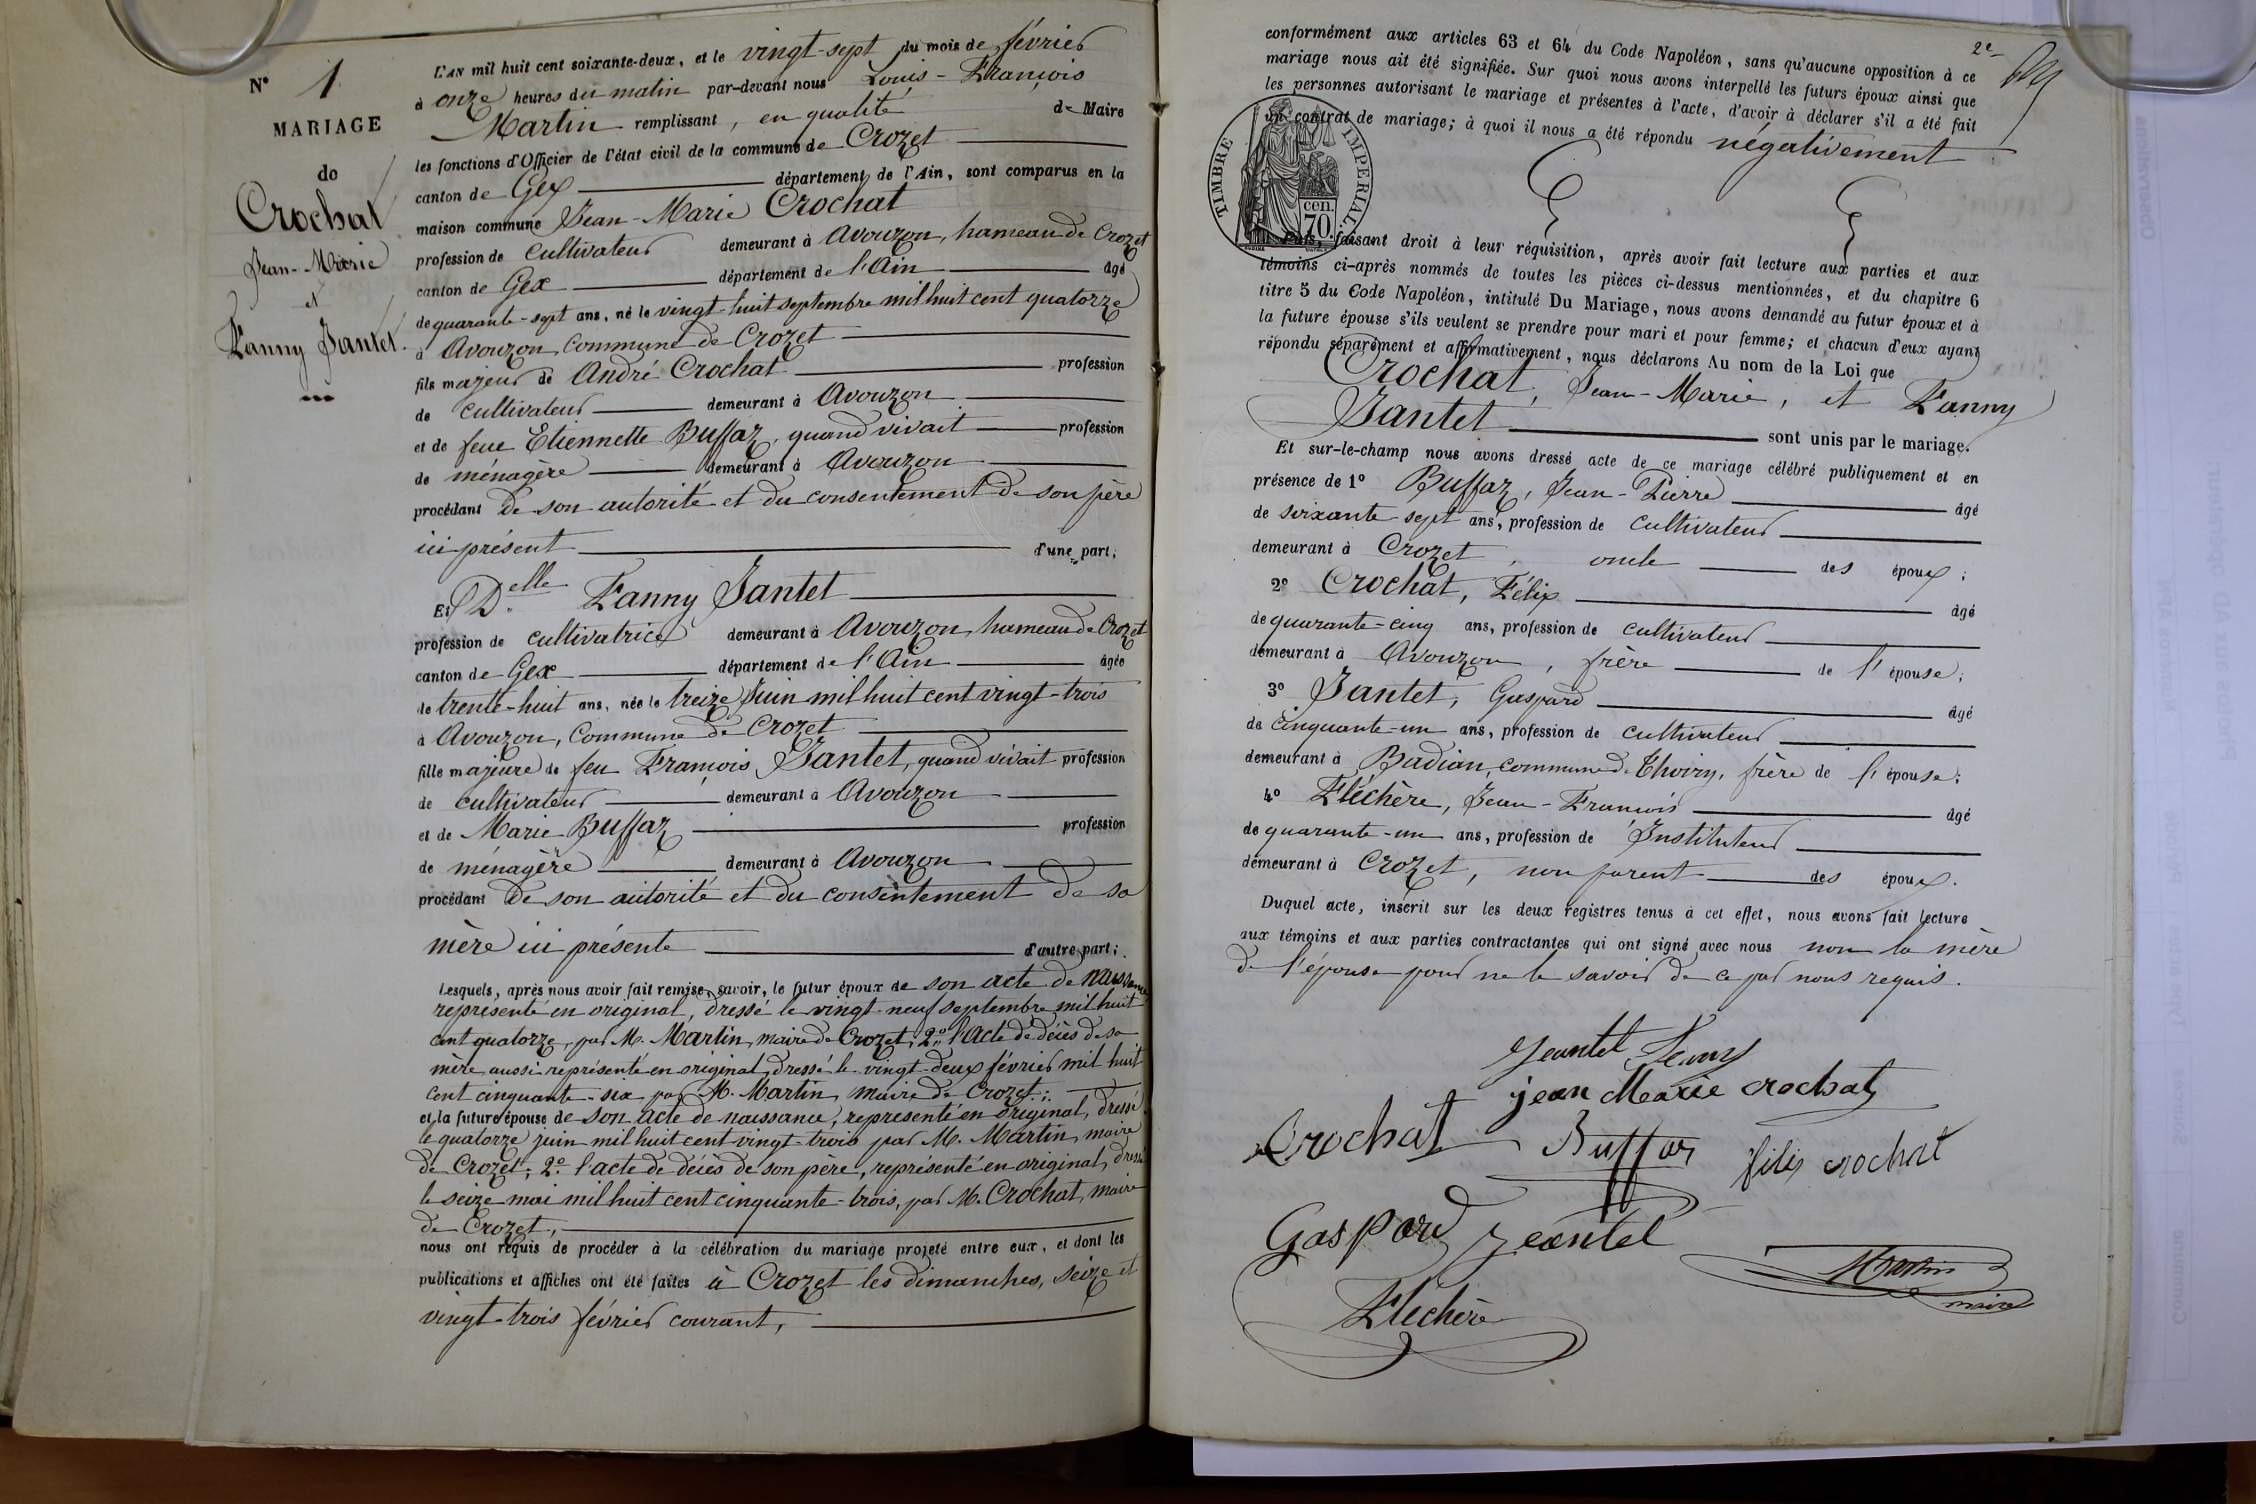 N° 1
MARIAGE
de
Crochat
Jean-Marie
et
Fanny Jantet.
L'AN mil huit cent soixante-deux, et le vingt-sept du mois de février
à onze heures du matin par-devant nous Louis-François
Martin remplissant, en qualité de Maire
les fonctions d'Officier de l'état civil de la commune de Crozet
canton de Gex département de l'Ain, sont comparus en la
maison commune Jean-Marie Crochat
profession de cultivateur demeurant à Avouzon, hameau de Crozet
canton de Gex département de l'Ain âgé
de quarante-sept ans, né le vingt-huit septembre mil huit cent quatorze
à Avouzon, Commune de Crozet
fils majeur de André Crochat profession
de cultivateur demeurant à Avouzon
et de feue Etiennette Buffaz, quand vivait profession
de ménagère demeurant à Avouzon
procédant de son autorité et du consentement de son père
ici présent d'une part;
Et Delle Fanny Jantet
profession de cultivatrice demeurant à Avouzon, hameau de Crozet
canton de Gex département de l'Ain âgée
de trente-huit ans, née le treize Juin mil huit cent vingt-trois
à Avouzon, Commune de Crozet
fille majeure de feu François Jantet, quand vivait profession
de cultivateur demeurant à Avouzon
et de Marie Buffaz profession
de ménagère demeurant à Avouzon
procédant de son autorité et du consentement de sa
mère ici présente d'autre part;
Lesquels, après nous avoir fait remise, savoir, le futur époux de son acte de naissance
représenté en original, dressé le vingt-neuf septembre mil huit
cent quatorze, par M. Martin, maire de Crozet; 2° l'acte de décès de sa
mère aussi représenté en original, dressé le vingt-deux février mil huit
cent cinquante-six par M. Martin, maire de Crozet;
et la future épouse de son acte de naissance, représenté en original, dressé
le quatorze juin mil huit cent vingt-trois par M. Martin, maire
de Crozet; 2° l'acte de décès de son père, représenté en original, dressé
le seize mai mil huit cent cinquante-trois, par M. Crochat, maire
de Crozet,
nous ont requis de procéder à la célébration du mariage projeté entre eux, et dont les
publications et affiches ont été faites à Crozet les dimanches, seize et
vingt-trois février courant,
2e
conformément aux articles 63 et 64 du Code Napoléon, sans qu'aucune opposition à ce
mariage nous ait été signifiée. Sur quoi nous avons interpellé les futurs époux ainsi que
les personnes autorisant le mariage et présentes à l'acte, d'avoir à déclarer s'il a été fait
un contrat de mariage; à quoi il nous a été répondu négativement
TIMBRE IMPERIAL.
cen.
70.
Puis, faisant droit à leur réquisition, après avoir fait lecture aux parties et aux
témoins ci-après nommés de toutes les pièces ci-dessus mentionnées, et du chapitre 6
titre 5 du Code Napoléon, intitulé Du Mariage, nous avons demandé au futur époux et à
la future épouse s'ils veulent se prendre pour mari et pour femme; et chacun d'eux ayant
répondu séparément et affirmativement, nous déclarons Au nom de la Loi que
Crochat, Jean-Marie, et Fanny
Jantet sont unis par le mariage.
Et sur-le-champ nous avons dressé acte de ce mariage célébré publiquement et en
présence de 1° Buffaz, Jean-Pierre âgé
de soixante-sept ans, profession de cultivateur
demeurant à Crozet, oncle des époux;
2° Crochat, Félix âgé
de quarante-cinq ans, profession de cultivateur
demeurant à Avouzon, frère de l'épouse;
3° Jantet, Gaspard âgé
de cinquante-un ans, profession de cultivateur
demeurant à Badian, commune de Thoiry, frère de l'épouse;
4° Fléchère, Jean-François âgé
de quarante-un ans, profession de Instituteur
demeurant à Crozet, non parent des époux.
Duquel acte, inscrit sur les deux registres tenus à cet effet, nous avons fait lecture
aux témoins et aux parties contractantes qui ont signé avec nous non la mère
de l'épouse pour ne le savoir de ce par nous requis.
Jeantet
jean Marie crochat
Crochat Buffaz félix crochat
Gaspard Jeantet
Martin
maire
Fléchère